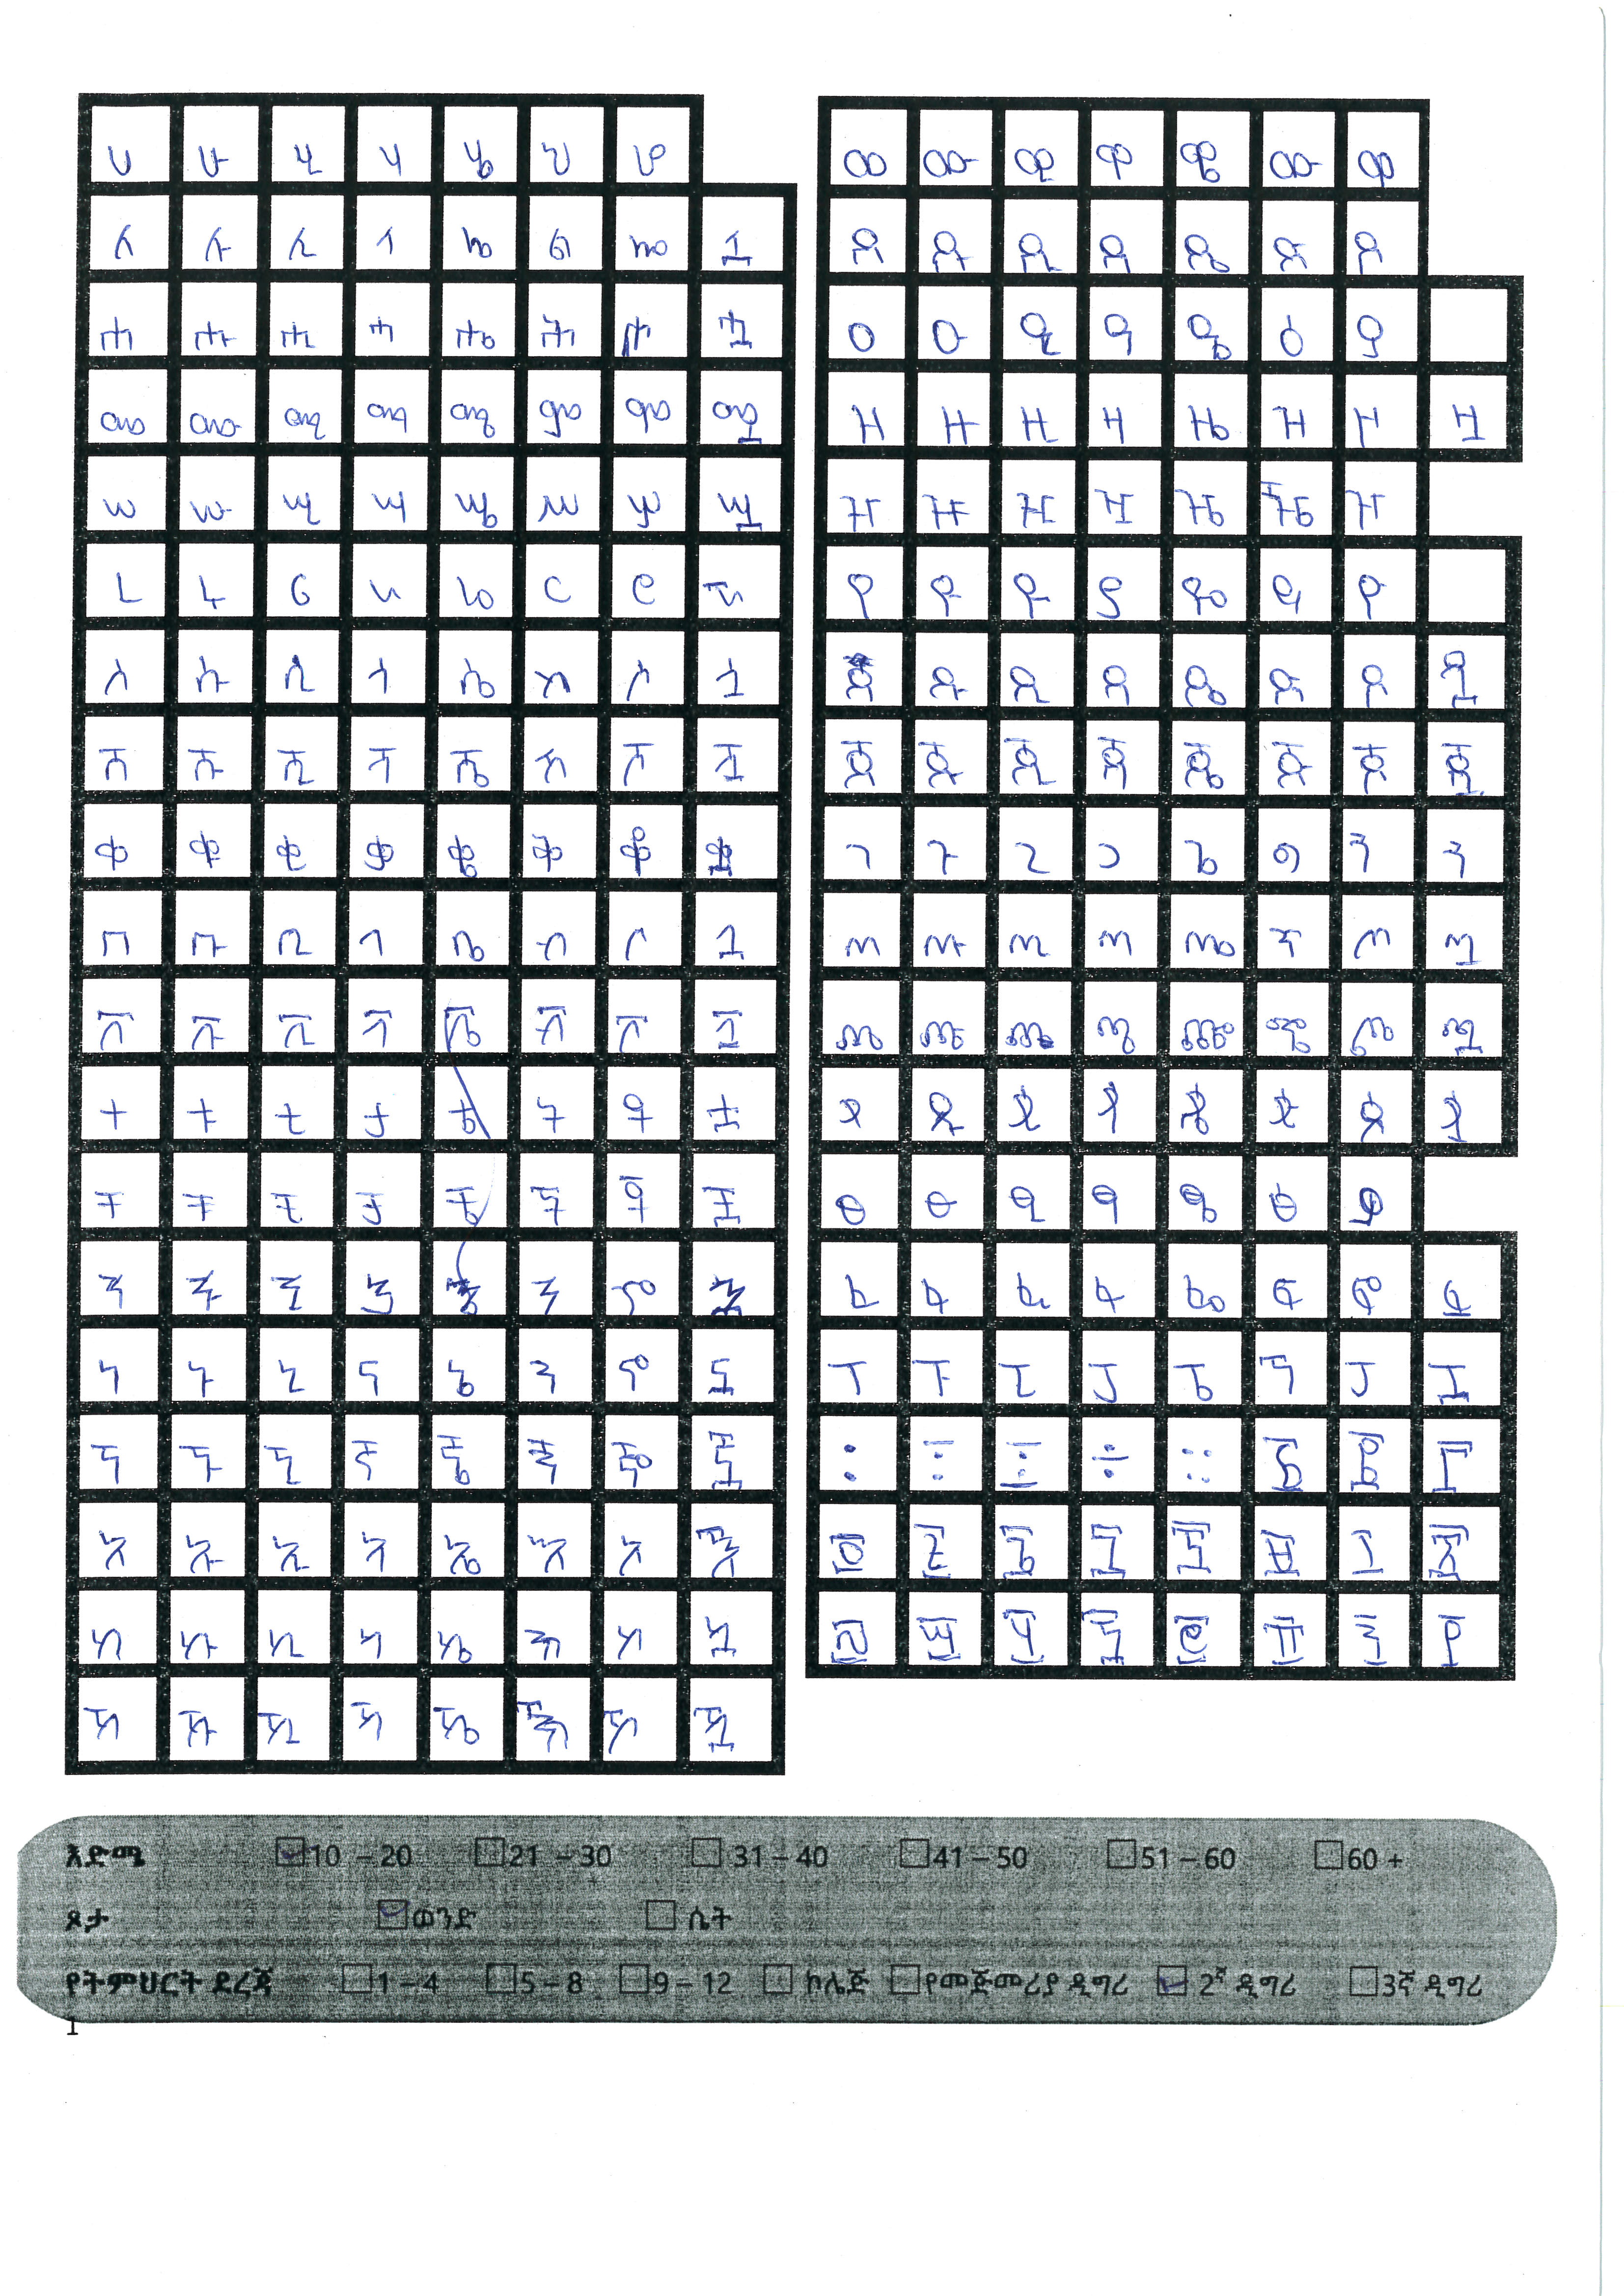 ሀ ሁ ሂ ሃ ሄ ህ ሆ
ለ ሉ ሊ ላ ሌ ል ሎ ሏ
ሐ ሑ ሒ ሓ ሔ ሕ ሖ ሗ
መ ሙ ሚ ማ ሜ ም ሞ ሟ
ሠ ሡ ሢ ሣ ሤ ሥ ሦ ሧ
ረ ሩ ሪ ራ ሬ ር ሮ ሯ
ሰ ሱ ሲ ሳ ሴ ስ ሶ ሷ
ሸ ሹ ሺ ሻ ሼ ሽ ሾ ሿ
ቀ ቁ ቂ ቃ ቄ ቅ ቆ ቋ
በ ቡ ቢ ባ ቤ ብ ቦ ቧ
ቨ ቩ ቪ ቫ ቬ ቭ ቮ ቯ
ተ ቱ ቲ ታ ት ቶ ቷ
ቸ ቹ ቺ ቻ ቼ ች ቾ ቿ
ኀ ኁ ኂ ኃ ኅ ኆ ኋ
ነ ኑ ኒ ና ኔ ን ኖ ኗ
ኘ ኙ ኚ ኛ ኜ ኝ ኞ ኟ
አ ኡ ኢ ኣ ኤ እ ኦ ኧ
ከ ኩ ኪ ካ ኬ ክ ኮ ኳ
ኸ ኹ ኺ ኻ ኼ ኽ ኾ ዃ
ወ ዉ ዊ ዋ ዌ ው ዎ
ዐ ዑ ዒ ዓ ዔ ዕ ዖ
ዘ ዙ ዚ ዛ ዜ ዝ ዞ ዟ
ዠ ዡ ዢ ዣ ዤ ዥ ዦ
የ ዩ ዪ ያ ዬ ይ ዮ
ደ ዱ ዲ ዳ ዴ ድ ዶ ዷ
ጀ ጁ ጂ ጃ ጄ ጅ ጆ ጇ
ገ ጉ ጊ ጋ ጌ ግ ጎ
ጠ ጡ ጢ ጣ ጤ ጥ ጦ ጧ
ጨ ጩ ጪ ጫ ጬ ጭ ጮ ጯ
ጸ ጹ ጺ ጻ ጼ ጽ ጾ ጿ
ፀ ፁ ፂ ፃ ፄ ፅ ፆ
ፈ ፉ ፊ ፋ ፌ ፍ ፎ ፏ
ፐ ፑ ፒ ፓ ፔ ፕ ፖ ፗ
፡ ፣ ፤ ። ፩ ፪ ፫
፬ ፭ ፮ ፯ ፰ ፱ ፲ ፳
፴ ፵ ፶ ፷ ፸ ፹ ፺ ፻
እድሜ 10 – 20 21 – 30 31 – 40 41 – 50 51 – 60 60 +
ጾታ ወንድ ሴት
የትምህርት ደረጃ 1 – 4 5 – 8 9 – 12 ኮሌጅ የመጀመሪያ ዲግሪ 2ኛ ዲግሪ 3ኛ ዲግሪ
1